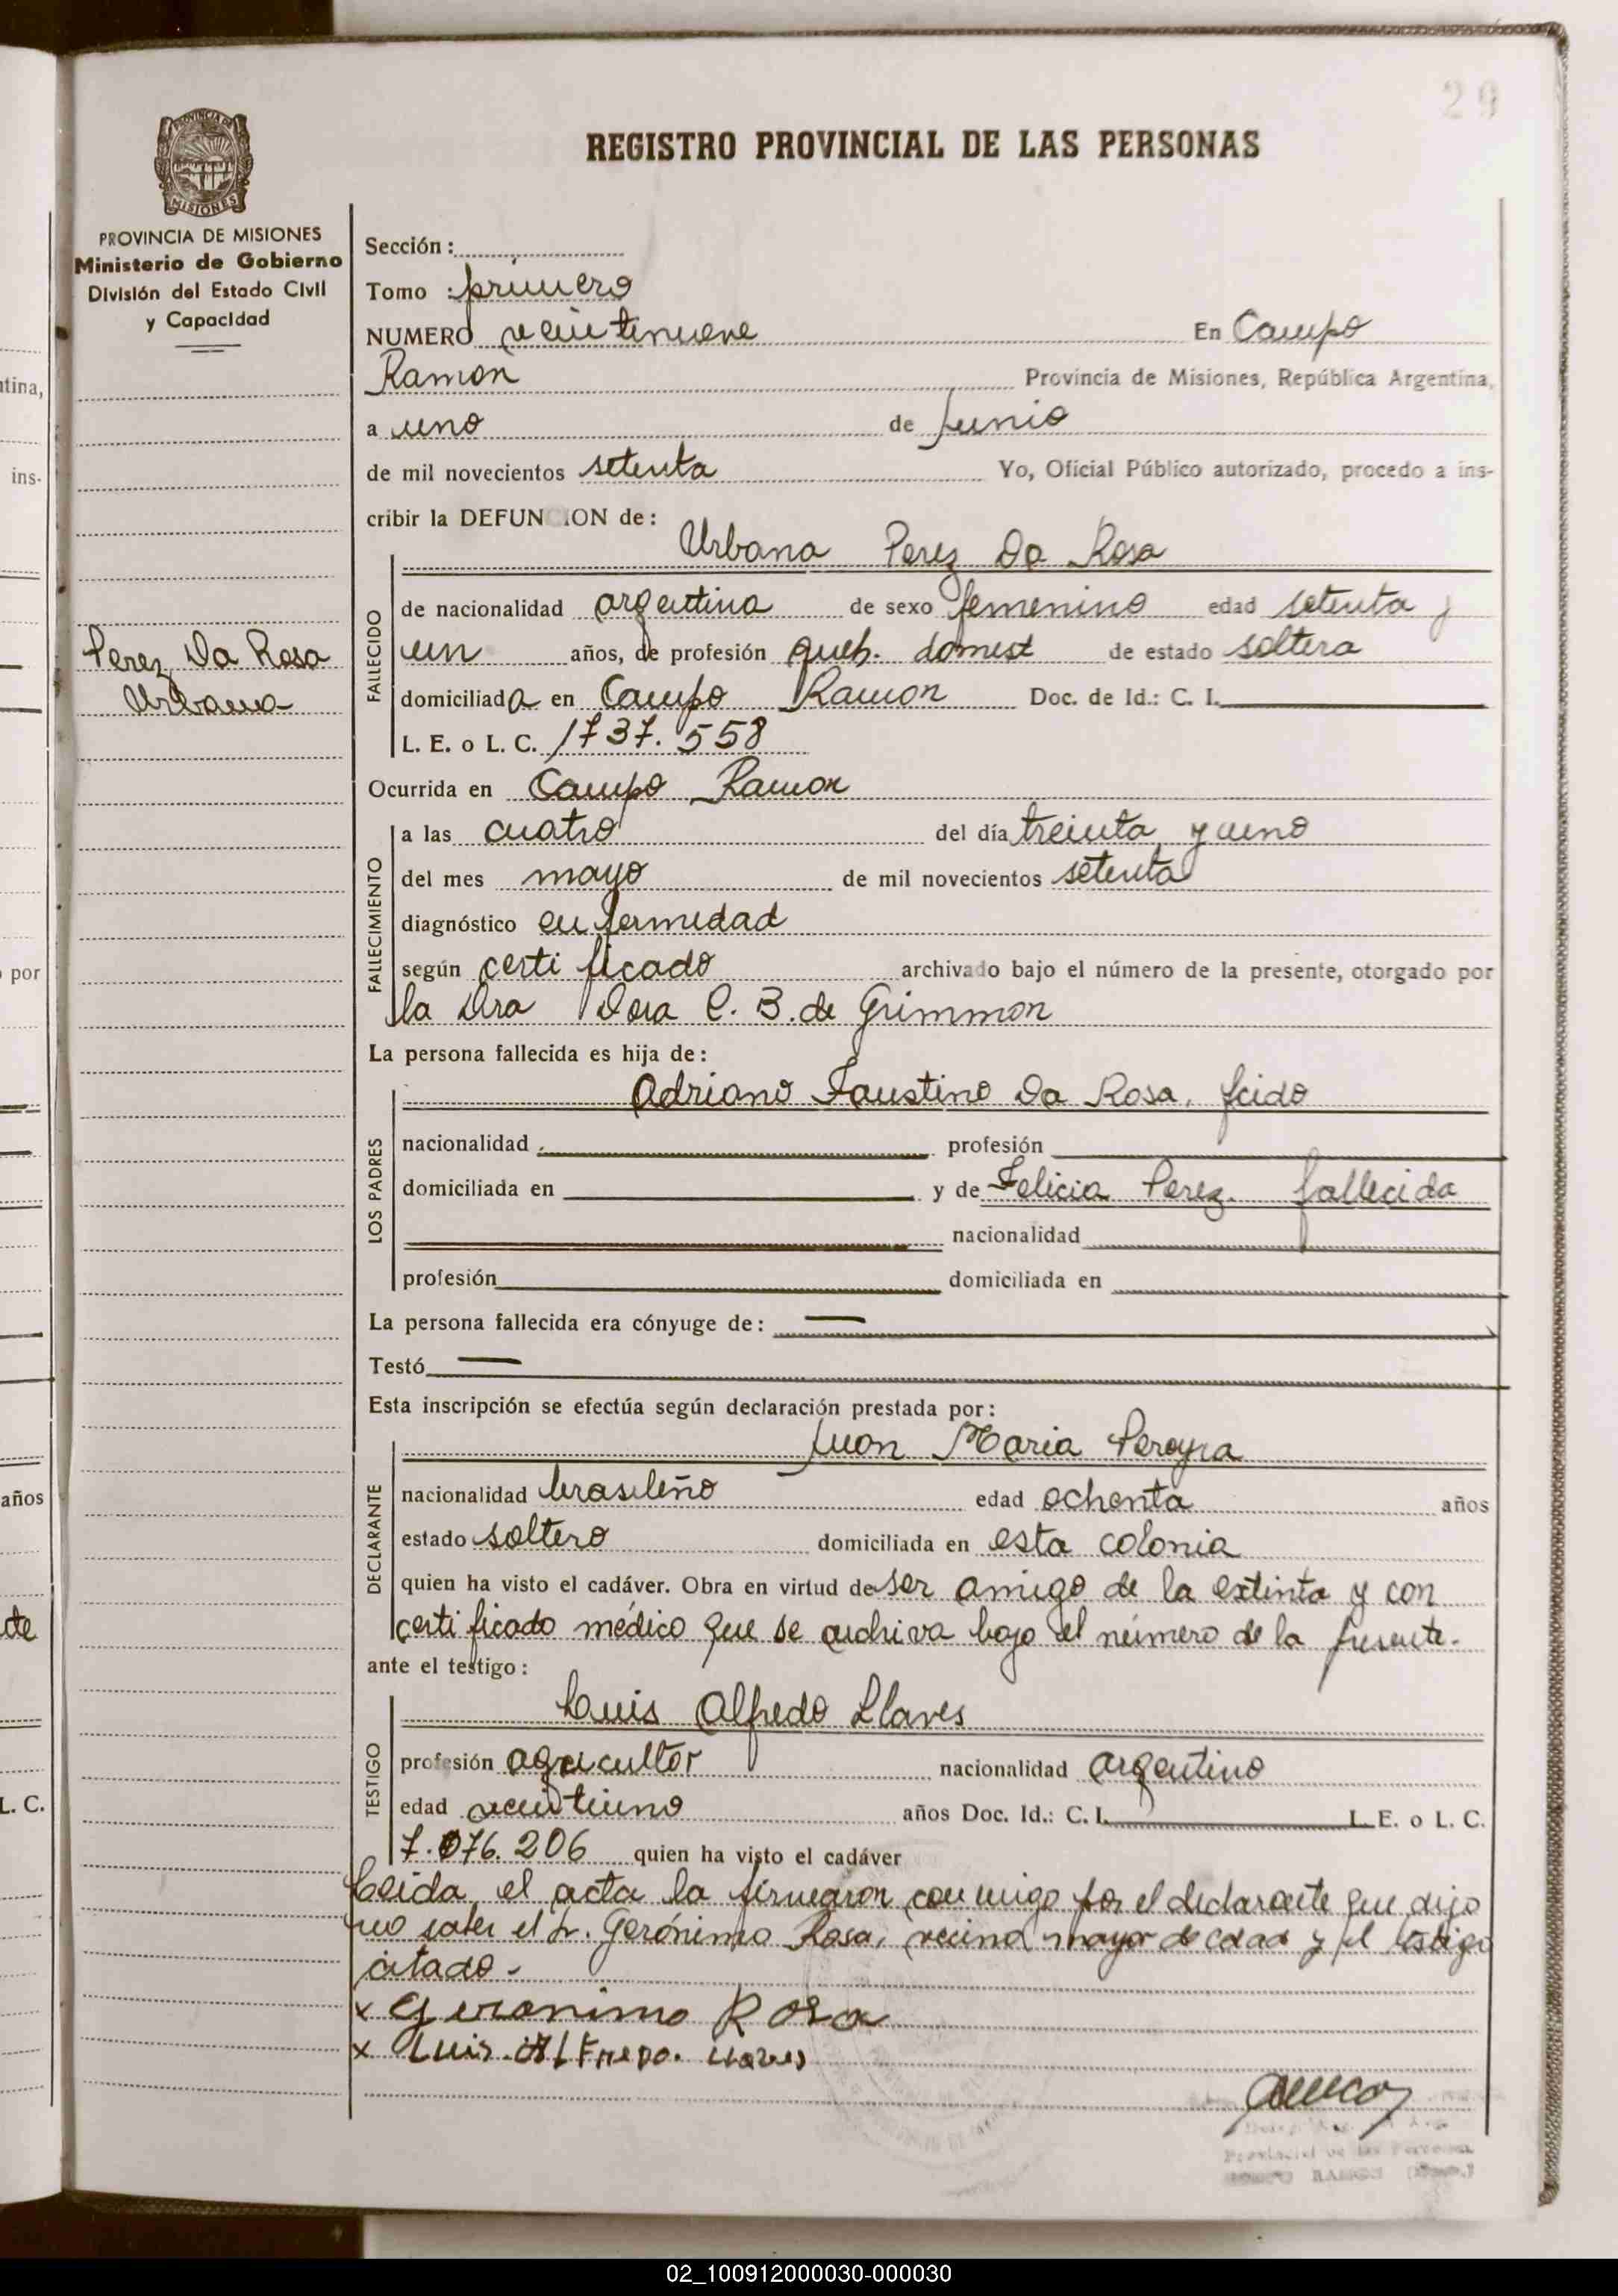 29
REGISTRO PROVINCIAL DE LAS PERSONAS
PROVINCIA DE
MISIONES
PROVINCIA DE MISIONES
Ministerio de Gobierno
División del Estado Civil
y Capacidad
Perez Da Rosa
Urbana
Sección:
Tomo : primero
NUMERO veintinueve En Campo
Ramon Provincia de Misiones, República Argentina,
a uno de Junio
de mil novecientos setenta Yo, Oficial Público autorizado, procedo a ins-
cribir la DEFUNCION de:
Urbana Perez Da Rosa
FALLECIDO
de nacionalidad argentina de sexo femenino edad setenta y
un años, de profesión queh. domest de estado soltera
domiciliada en Campo Ramon Doc. de Id.: C. I.
L. E. o L. C. 1737.558
Ocurrida en Campo Ramon
FALLECIMIENTO
a las cuatro del día treinta y uno
del mes mayo de mil novecientos setenta
diagnóstico enfermedad
según certificado archivado bajo el número de la presente, otorgado por
la Dra Dora C. B. de Grimmon
La persona fallecida es hija de:
LOS PADRES
Adriano Faustino Da Rosa, fcido
nacionalidad profesión
domiciliada en y de Felicia Perez. fallecida
nacionalidad
profesión domiciliada en
La persona fallecida era cónyuge de: —
Testó —
Esta inscripción se efectúa según declaración prestada por:
DECLARANTE
Juan Maria Pereyra
nacionalidad brasileño edad ochenta años
estado soltero domiciliada en esta colonia
quien ha visto el cadáver. Obra en virtud de ser amigo de la extinta y con
certificado médico que se archiva bajo el número de la presente.
ante el testigo:
TESTIGO
Luis Alfredo Llaves
profesión agricultor nacionalidad argentino
edad veintiuno años Doc. Id.: C. I. L. E. o L. C.
7.076.206 quien ha visto el cadáver
Leida el acta la firmaron conmigo por el declarante que dijo
no saber el Sr. Gerónimo Rosa, vecino mayor de edad y el testigo
citado.
x Geronimo Rosa
x Luis Alfredo. Llaves
Provincial de las Personas
CAMPO RAMON
tina,
ins-
por
años
te
L. C.
02_100912000030-000030